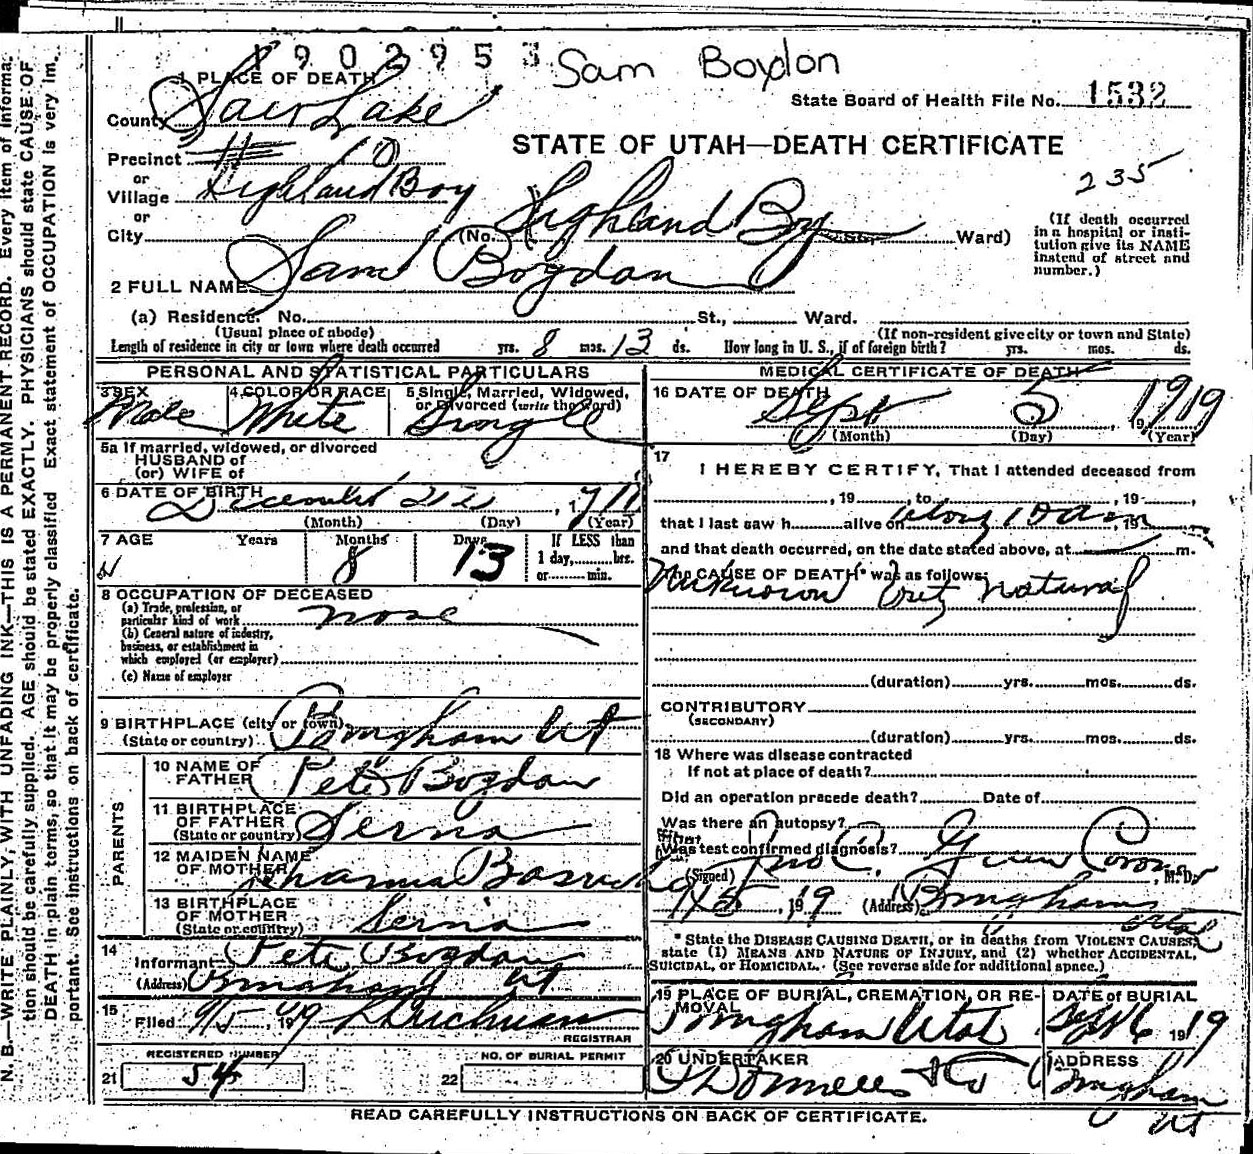 1902953
Sam Boydon
1 PLACE OF DEATH
State Board of Health File No. 1532
County Salt Lake
STATE OF UTAH—DEATH CERTIFICATE
Precinct 10
235
or
Village Highland Boy
or
City (No. Highland Boy St., Ward)
(If death occurred in a hospital or institution give its NAME instead of street and number.)
2 FULL NAME Sam Bogdan
(a) Residence. No. St., Ward.
(Usual place of abode) (If non-resident give city or town and State)
Length of residence in city or town where death occurred yrs. 8 mos. 13 ds. How long in U. S., if of foreign birth? yrs. mos. ds.
PERSONAL AND STATISTICAL PARTICULARS
3 SEX Male
4 COLOR OR RACE White
5 Single, Married, Widowed, or Divorced (write the word) Single
5a If married, widowed, or divorced
HUSBAND of
(or) WIFE of
6 DATE OF BIRTH December
(Month) (Day) (Year)
7 AGE Years Months 8 Days 13 If LESS than 1 day, hrs. or min.
8 OCCUPATION OF DECEASED
(a) Trade, profession, or particular kind of work none
(b) General nature of industry, business, or establishment in which employed (or employer)
(c) Name of employer
9 BIRTHPLACE (city or town) Bingham Ut
(State or country)
PARENTS
10 NAME OF FATHER Pete Bogdan
11 BIRTHPLACE OF FATHER (State or country) Servia
12 MAIDEN NAME OF MOTHER
13 BIRTHPLACE OF MOTHER (State or country) Servia
14 Informant Pete Bogdan
(Address) Bingham Ut
15 Filed 9/5, 1919
REGISTRAR
REGISTERED NUMBER
21 54
NO. OF BURIAL PERMIT
22
MEDICAL CERTIFICATE OF DEATH
16 DATE OF DEATH Sept 5 1919
(Month) (Day) (Year)
17 I HEREBY CERTIFY, That I attended deceased from
, 19 , to , 19 ,
that I last saw h alive on , 19
and that death occurred, on the date stated above, at m.
The CAUSE OF DEATH* was as follows:
Unknown but natural
(duration) yrs. mos. ds.
CONTRIBUTORY
(SECONDARY)
(duration) yrs. mos. ds.
18 Where was disease contracted
If not at place of death?
Did an operation precede death? Date of
Was there an autopsy?
What test confirmed diagnosis?
(Signed) Jno C. Green Coroner, M. D.
9/5, 1919 (Address) Bingham Utah
* State the DISEASE CAUSING DEATH, or in deaths from VIOLENT CAUSES, state (1) MEANS AND NATURE OF INJURY, and (2) whether ACCIDENTAL, SUICIDAL, or HOMICIDAL. (See reverse side for additional space.)
19 PLACE OF BURIAL, CREMATION, OR REMOVAL Bingham Utah
DATE of BURIAL Sept 6 1919
20 UNDERTAKER O'Donnell & Co
ADDRESS Bingham Ut
READ CAREFULLY INSTRUCTIONS ON BACK OF CERTIFICATE.
N. B.—WRITE PLAINLY, WITH UNFADING INK—THIS IS A PERMANENT RECORD. Every item of information should be carefully supplied. AGE should be stated EXACTLY. PHYSICIANS should state CAUSE OF DEATH in plain terms, so that it may be properly classified. Exact statement of OCCUPATION is very important. See instructions on back of certificate.